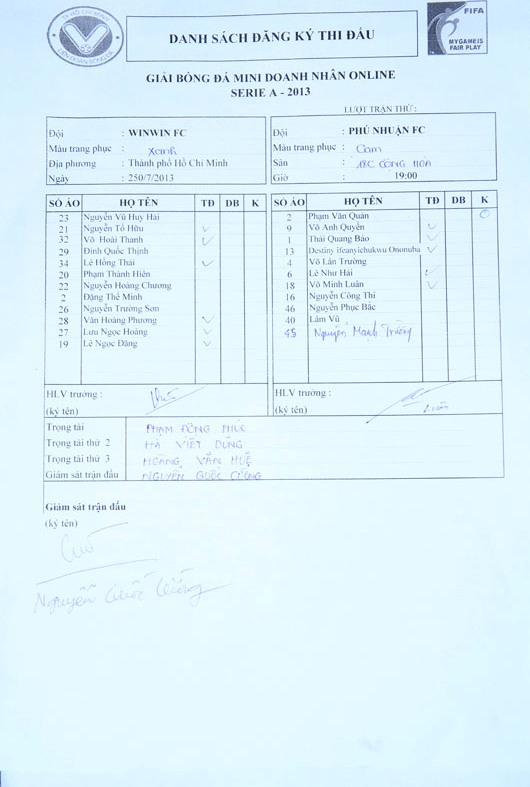 TP. HỒ CHÍ MINH
LIÊN ĐOÀN BÓNG ĐÁ
DANH SÁCH ĐĂNG KÝ THI ĐẤU
FIFA
MY GAME IS FAIR PLAY
GIẢI BÓNG ĐÁ MINI DOANH NHÂN ONLINE
SERIE A - 2013
LƯỢT TRẬN THỨ :
Đội : WINWIN FC
Màu trang phục : Xanh
Địa phương : Thành phố Hồ Chí Minh
Ngày : 250/7/2013
Đội : PHÚ NHUẬN FC
Màu trang phục : Cam
Sân : 18C CỘNG HÒA
Giờ : 19:00
SỐ ÁO HỌ TÊN TĐ DB K
23 Nguyễn Vũ Huy Hải
21 Nguyễn Tố Hữu
32 Võ Hoài Thanh
29 Đinh Quốc Thịnh
34 Lê Hồng Thái
20 Phạm Thành Hiên
22 Nguyễn Hoàng Chương
2 Đặng Thế Minh
26 Nguyễn Trường Sơn
28 Văn Hoàng Phương
27 Lưu Ngọc Hoàng
19 Lê Ngọc Đăng
SỐ ÁO HỌ TÊN TĐ DB K
2 Phạm Văn Quán
9 Võ Anh Quyền
1 Thái Quang Bảo
13 Destiny ifeanyichukwu Ononuba
4 Võ Lân Trường
6 Lê Như Hải
18 Võ Minh Luân
16 Nguyễn Công Thi
46 Nguyễn Phục Bắc
40 Lâm Vũ
45 Nguyễn Mạnh Trường
HLV trưởng :
(ký tên)
HLV trưởng :
(ký tên)
Trọng tài PHẠM ĐÔNG PHÚC
Trọng tài thứ 2 HÀ VIẾT DŨNG
Trọng tài thứ 3 HOÀNG VĂN HUỆ
Giám sát trận đấu NGUYỄN QUỐC CƯỜNG
Giám sát trận đấu
(ký tên)
Nguyễn Quốc Cường